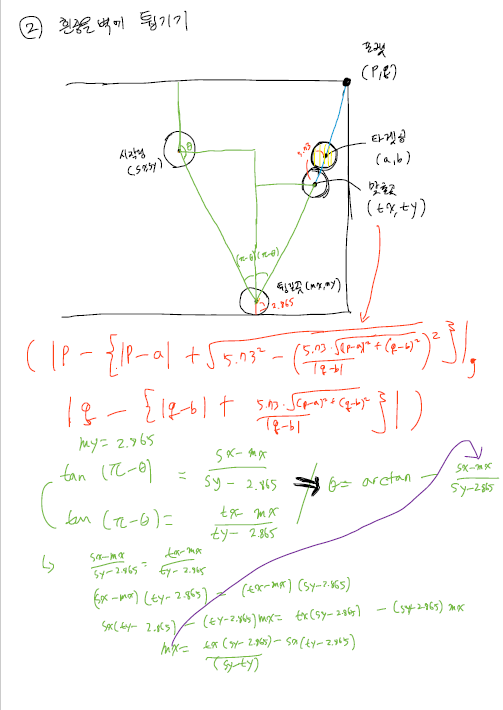 ② 흰공을 벽에 튕기기
포켓
(P,q)
시작점
(sx,sy)
θ
5.73
타겟공
(a,b)
맞출곳
(tx,ty)
(π-θ) (π-θ)
튕길곳 (mx,my)
2.865
( |P - {|P-a| + √(5.73² - (5.73·√((P-a)²+(q-b)²) / |q-b|)²)}| ,
|q - {|q-b| + 5.73·√((P-a)²+(q-b)²) / |q-b|}| )
my = 2.865
tan (π-θ) = (sx-mx) / (sy-2.865)
θ = arctan - (sx-mx) / (sy-2.865)
tan (π-θ) = (tx-mx) / (ty-2.865)
↳ (sx-mx) / (sy-2.865) = (tx-mx) / (ty-2.865)
(sx-mx)(ty-2.865) = (tx-mx)(sy-2.865)
sx(ty-2.865) - (ty-2.865)mx = tx(sy-2.865) - (sy-2.865)mx
mx = (tx(sy-2.865) - sx(ty-2.865)) / (sy-ty)